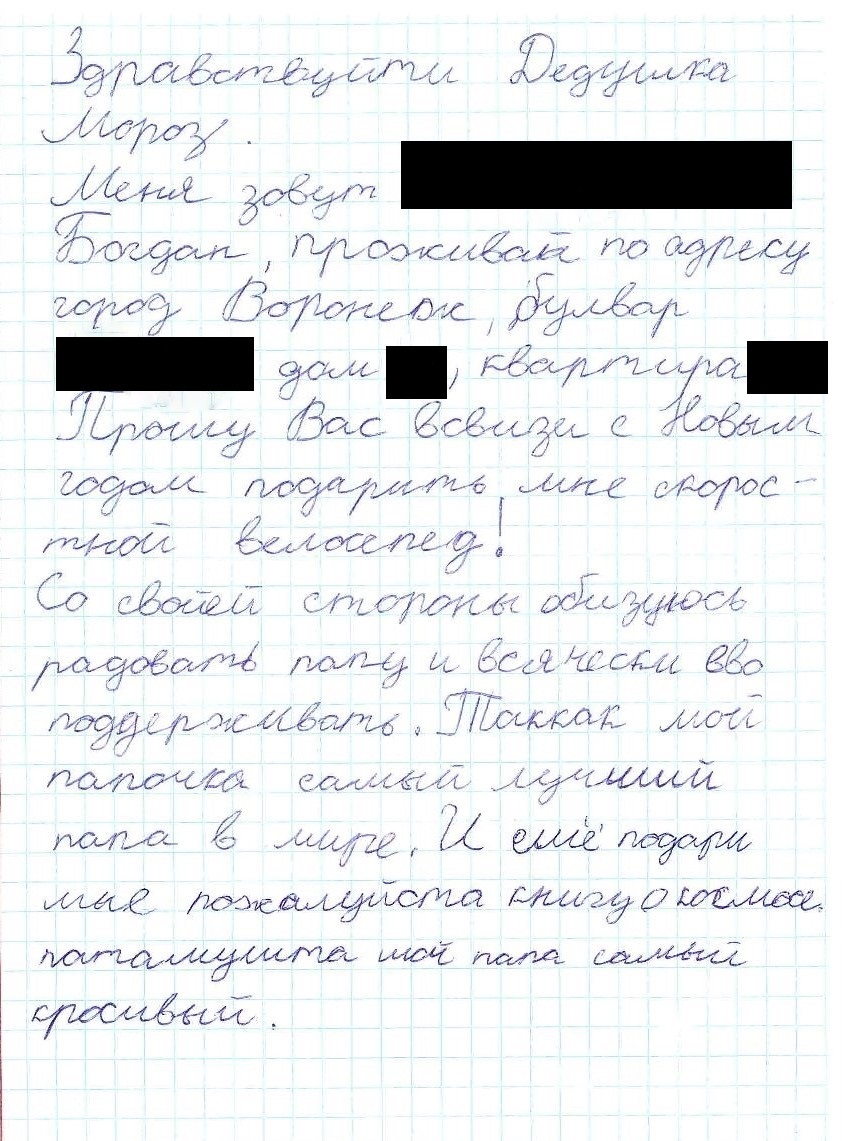 Здравствуйти Дедушка
Мороз.
Меня зовут
Богдан, проживаю по адресу
город Воронеж, булвар
дом , квартира
Прошу Вас всвизи с Новым
годом подарить мне скорос-
тной велосепед!
Со своей стороны обизуюсь
радовать папу и всячески ево
поддерживать. Таккак мой
папочка самый лучший
папа в мире. И ещё подари
мне пожалуйста книгу о космосе.
патамушта мой папа самый
кросивый.